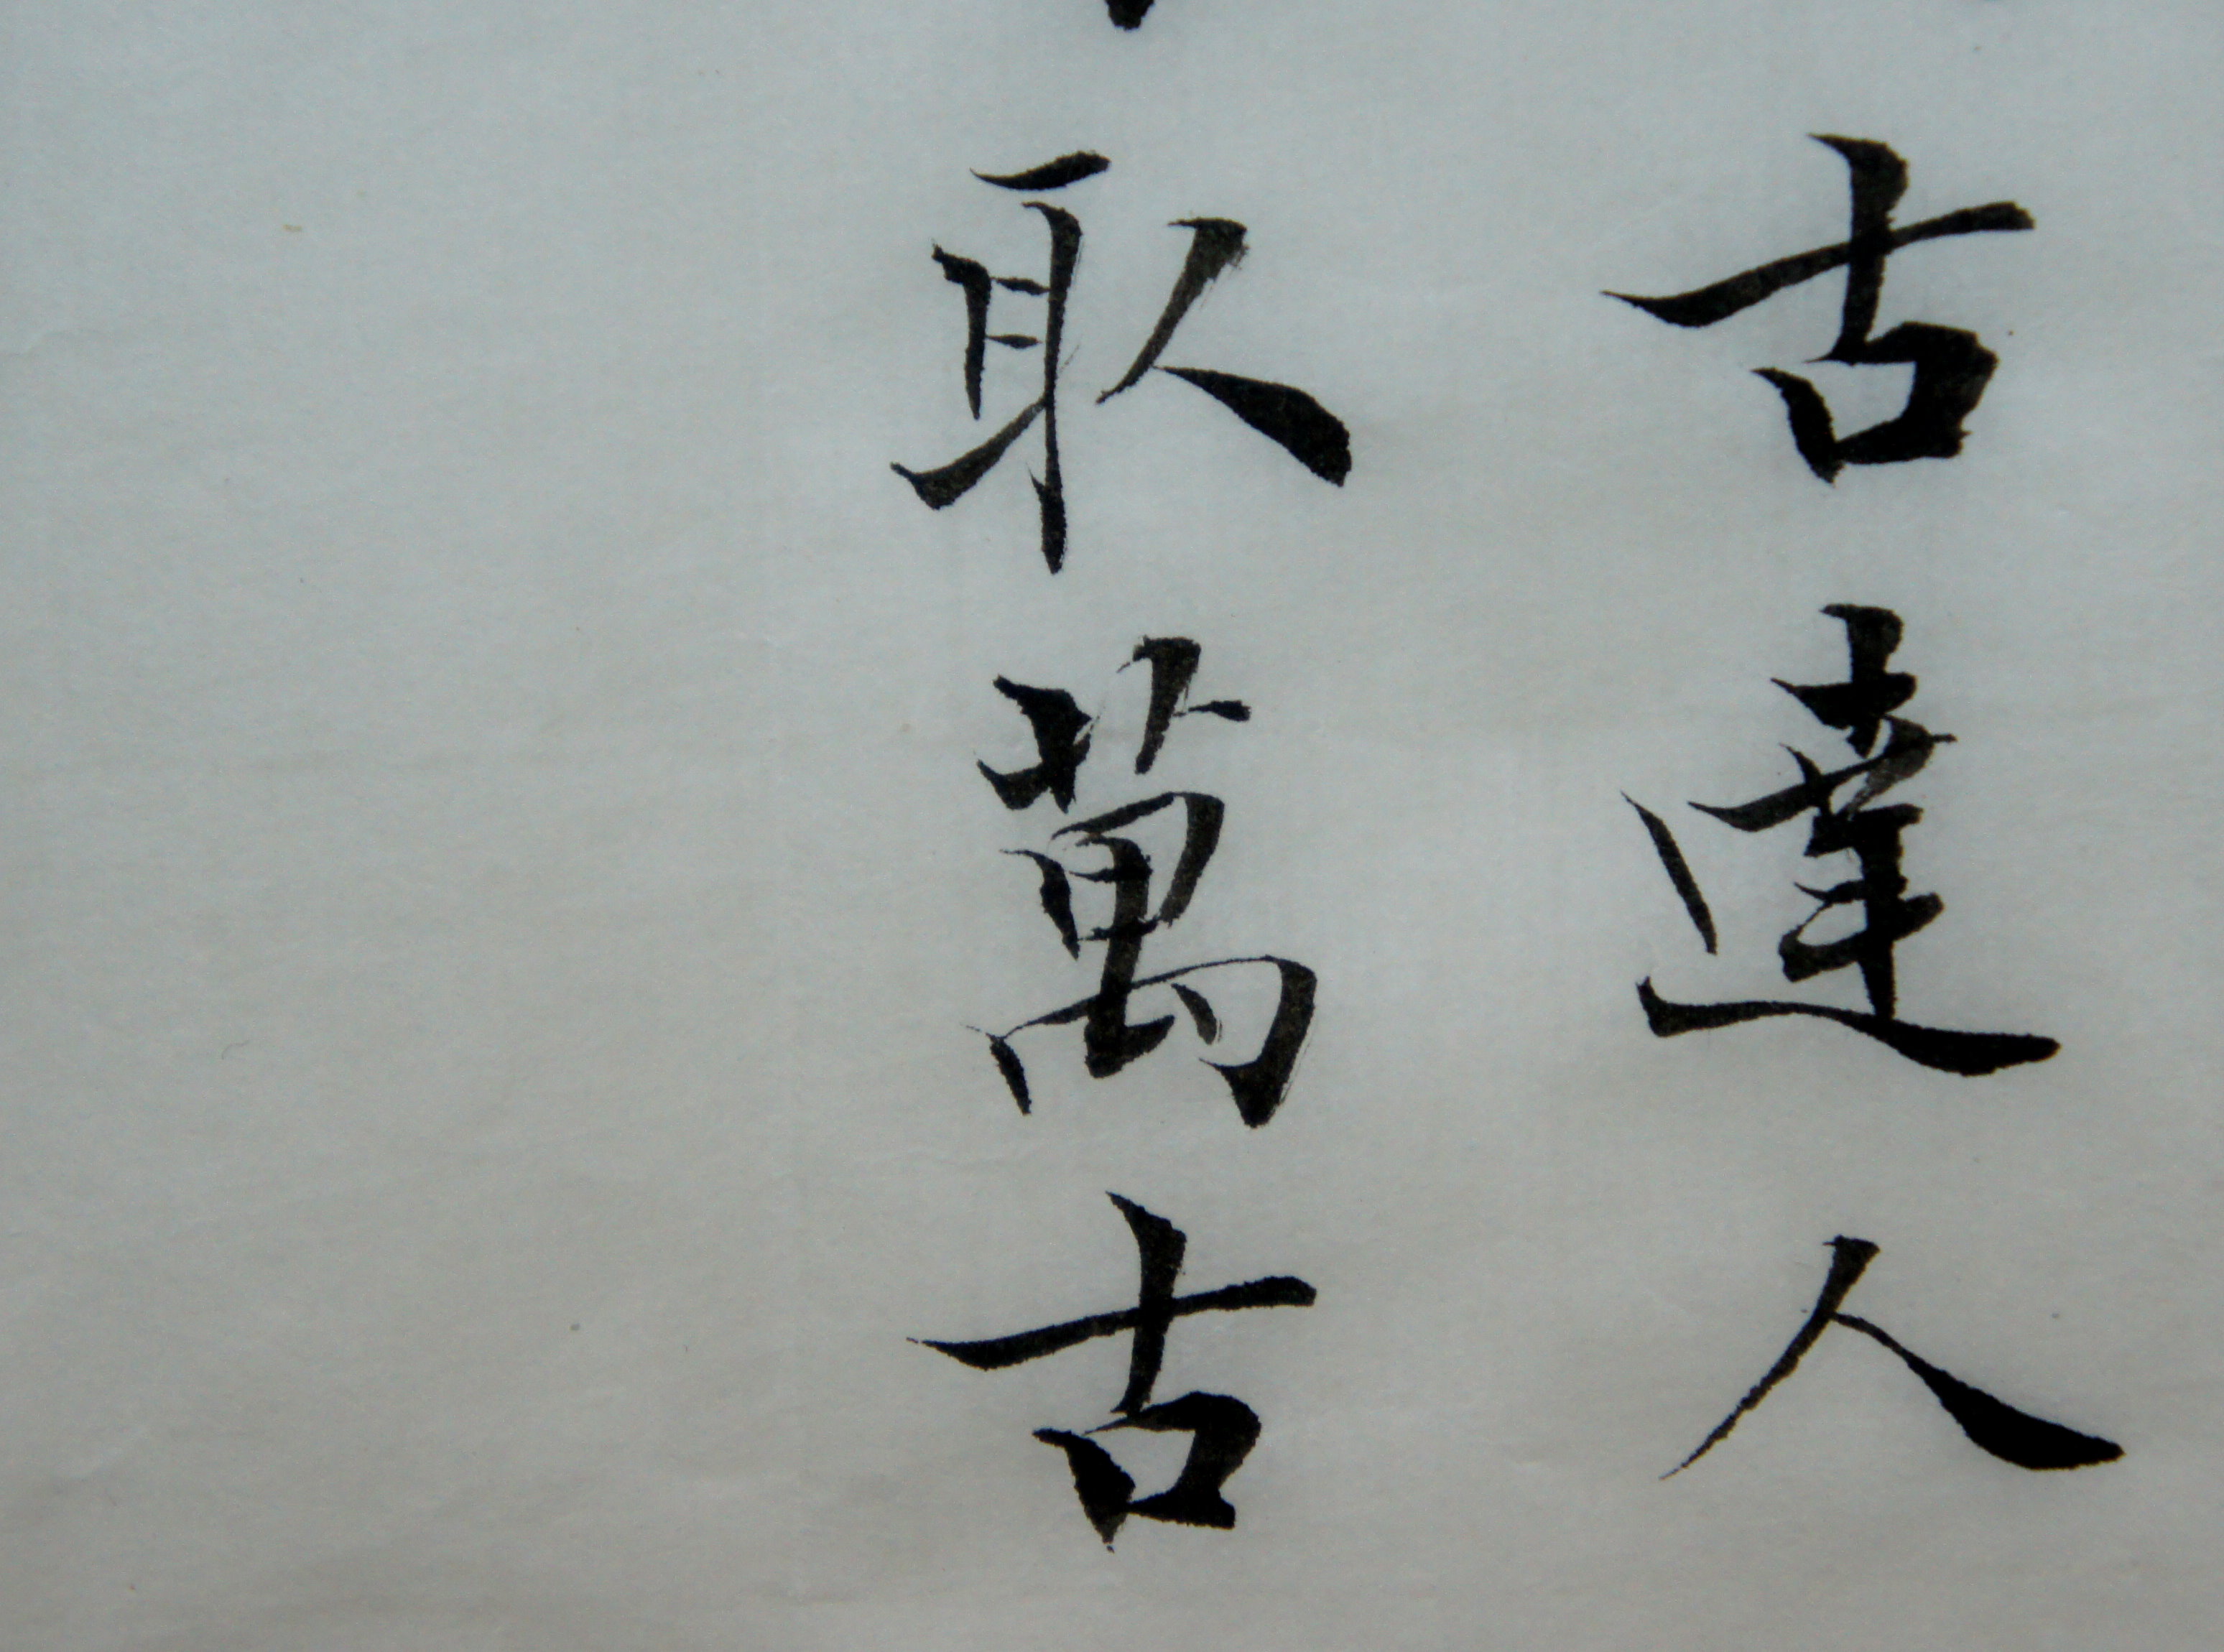 古達人
取萬古